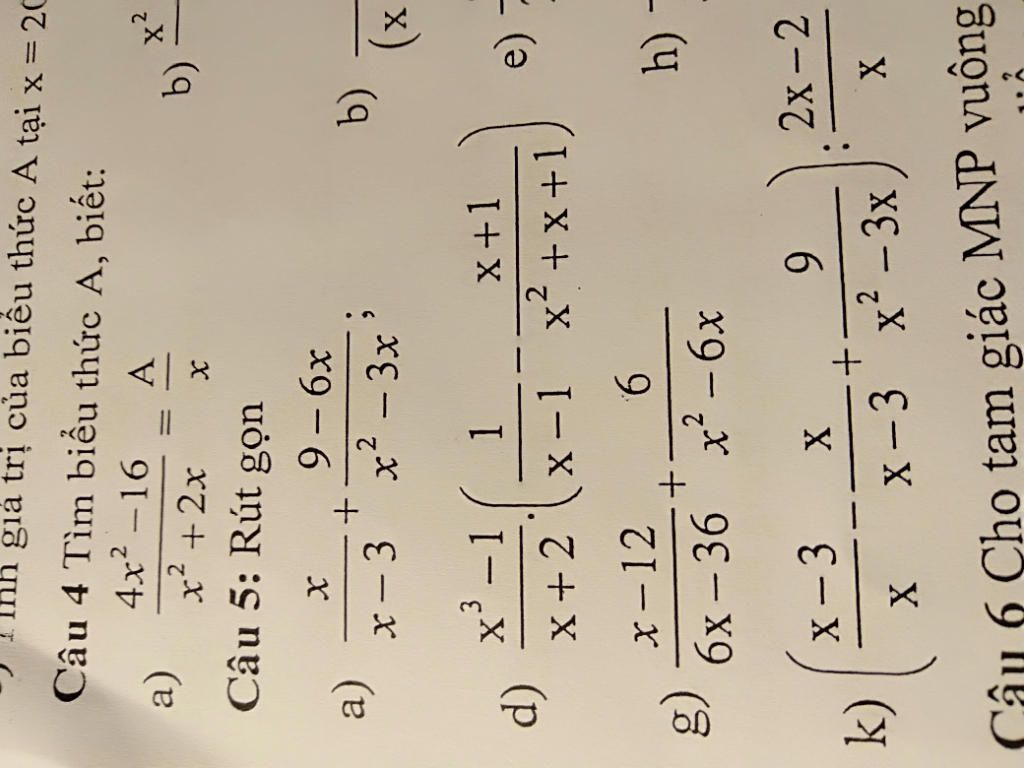 giá trị của biểu thức A tại x = 20
Câu 4 Tìm biểu thức A, biết:
a) (4x² − 16)/(x² + 2x) = A/x b) x²
Câu 5: Rút gọn
a) x/(x − 3) + (9 − 6x)/(x² − 3x); b) (x
d) (x³ − 1)/(x + 2) · (1/(x − 1) − (x + 1)/(x² + x + 1)) e)
g) (x − 12)/(6x − 36) + 6/(x² − 6x) h)
k) ((x − 3)/x − x/(x − 3) + 9/(x² − 3x)) : (2x − 2)/x
Câu 6 Cho tam giác MNP vuông